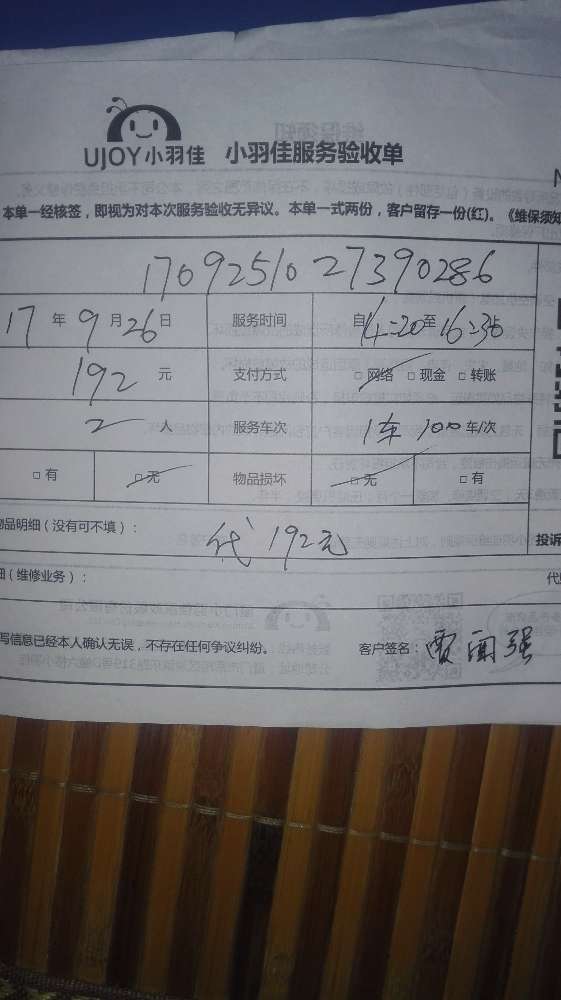 UJOY小羽佳 小羽佳服务验收单
本单一经核签，即视为对本次服务验收无异议。本单一式两份，客户留存一份(红)。《维保须知
1709251027390286
17 年 9 月 26 日 服务时间 自 14:20 至 16:36
192 元 支付方式 □ 网络 □ 现金 □ 转账
2 人 服务车次 1车 100 车/次
□ 有 □ 无 物品损坏 □ 无 □ 有
物品明细（没有可不填）： 代 192元 投诉
细（维修业务）：
写信息已经本人确认无误，不存在任何争议纠纷。 客户签名：